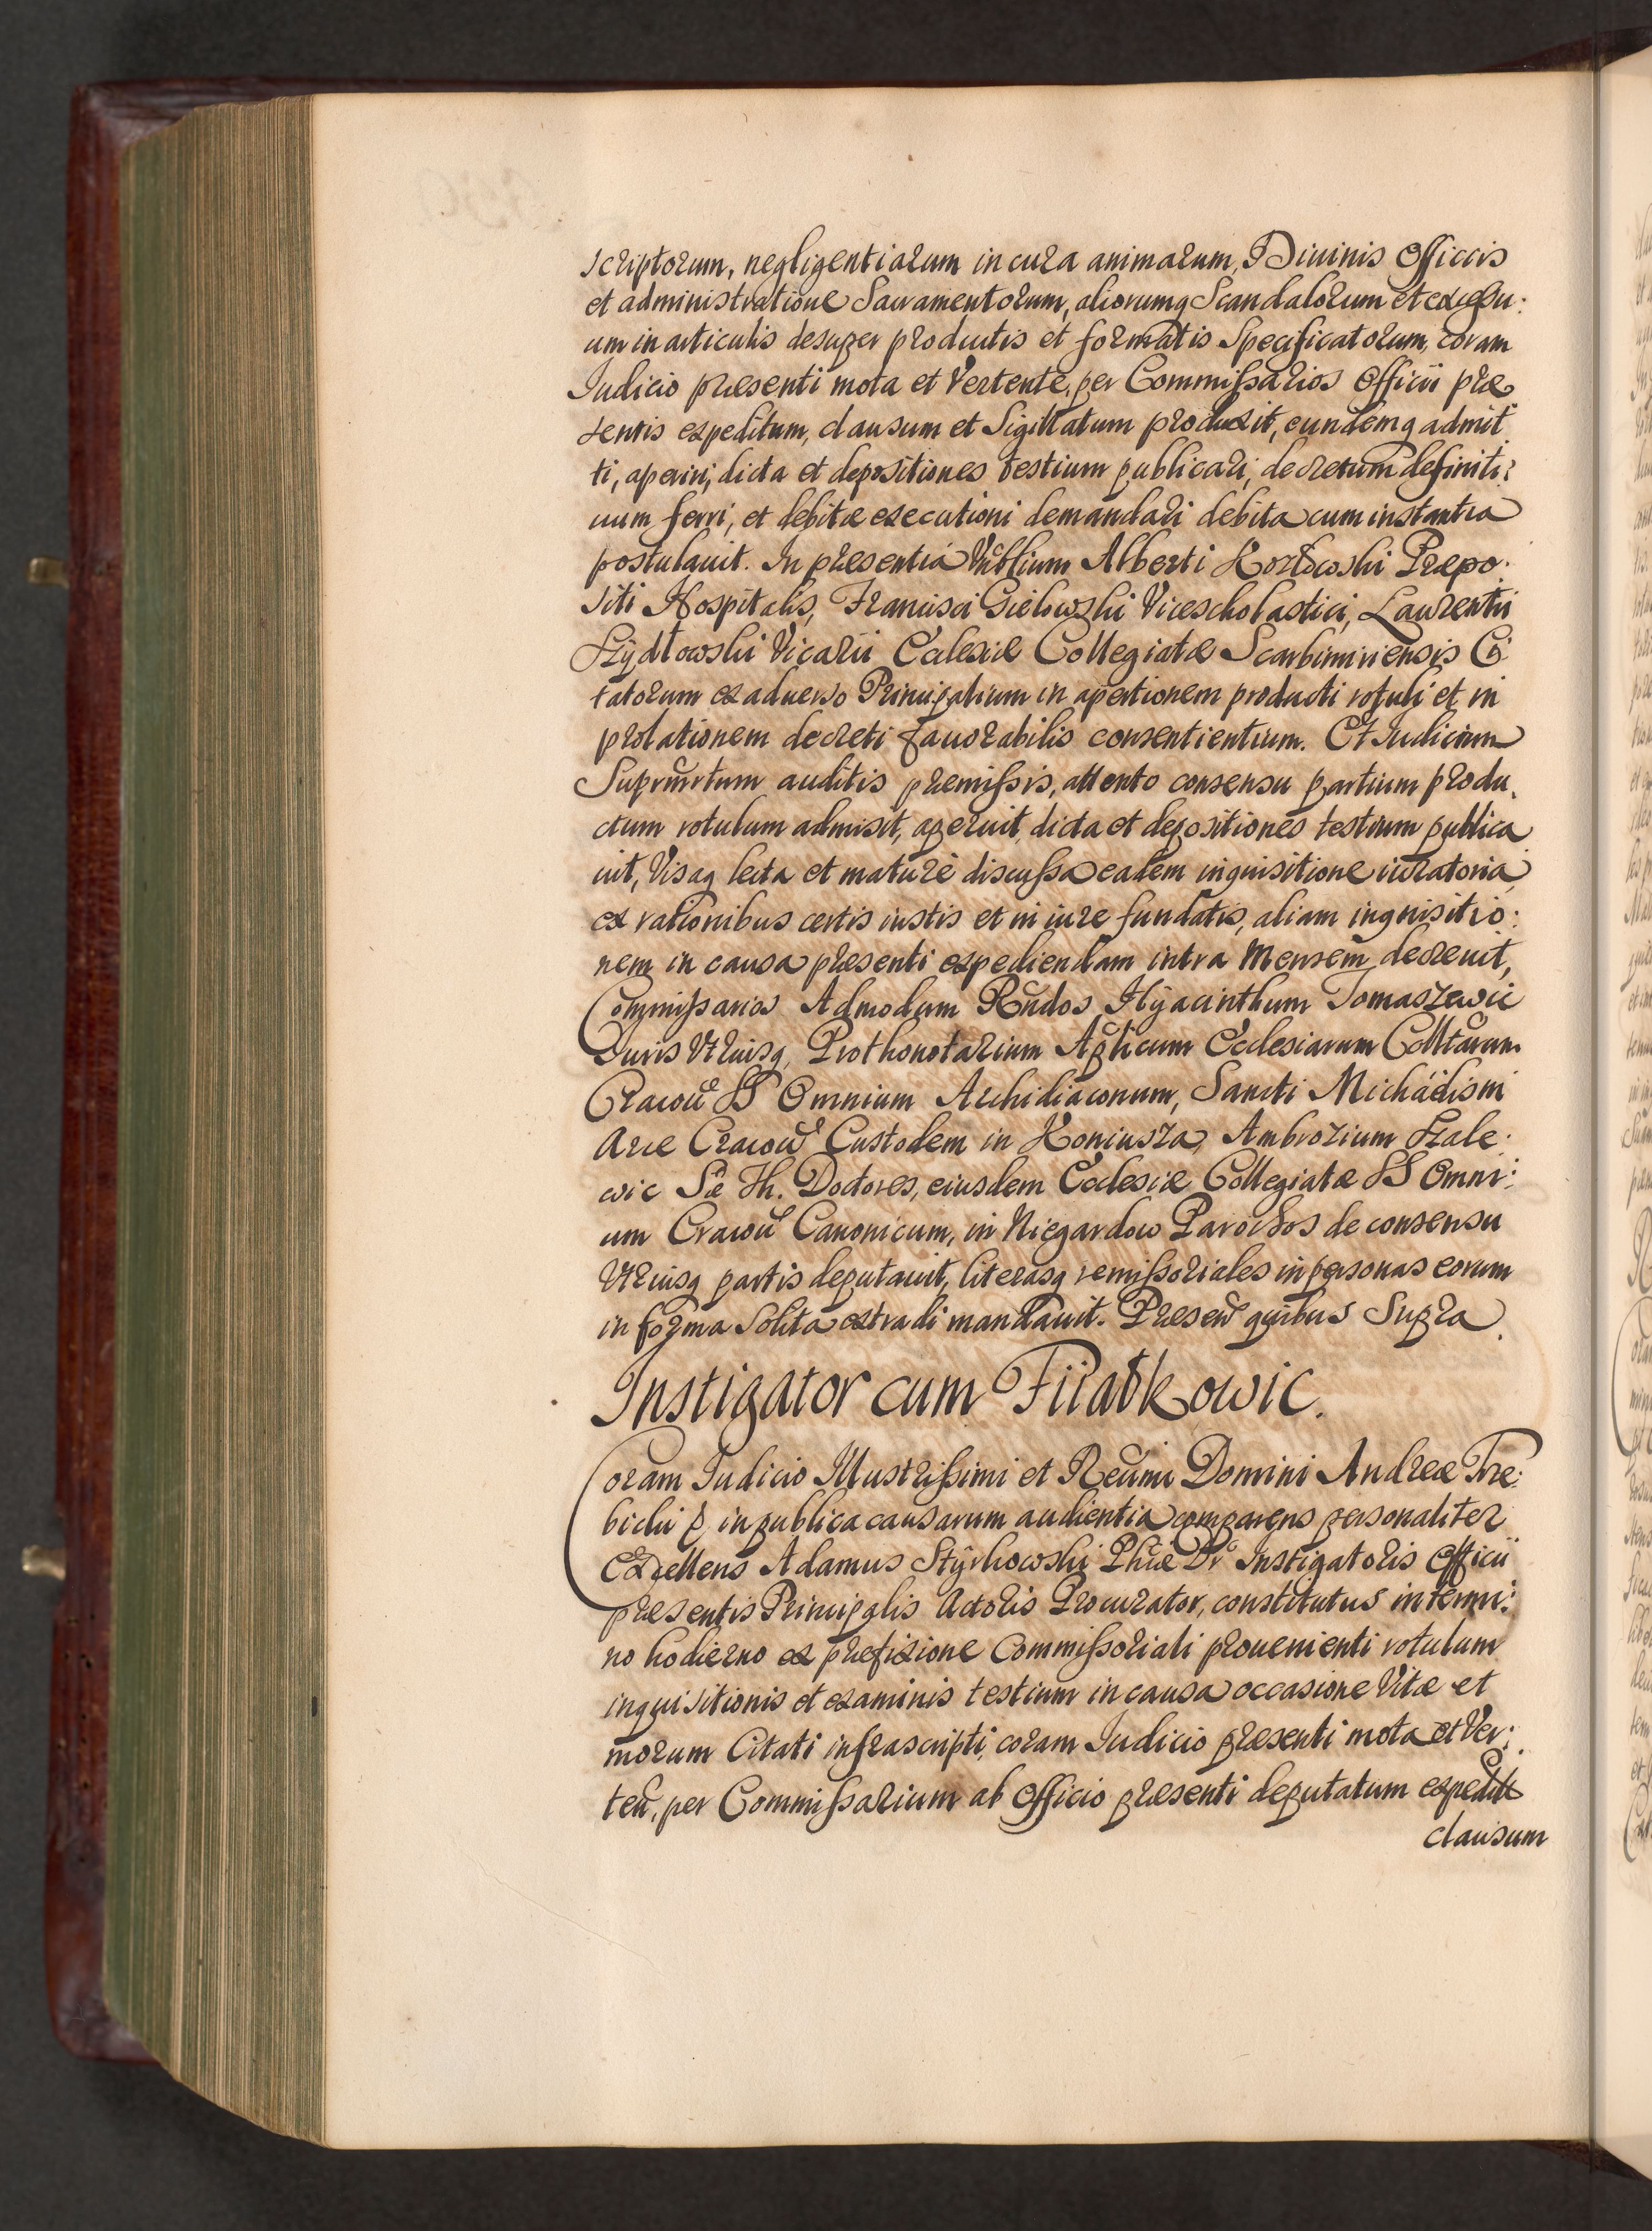 scriptorum, negligentiarum in cura animarum, Diuinis Officiis
et administratione Sacramentorum, aliorumq Scandalorum et excessu:
um in articulis desuper productis et formatis Specificatorum, coram
Iudicio præsenti mota et Vertente, per Commissarios Officii præ
sentis expeditum, clausum et Sigillatum produxit, eundemq admit
ti, aperiri, dicta et depositiones testium publicari, decretum definiti:
uum ferri, et debitæ executioni demandari debita cum instantia
postulauit. In præsentia Vnblium Alberti Præpo:
siti Hospitalis, Francisci Gielowski Vicescholastici, Laurentii
Szydłowski Vicarii Ecclesiæ Collegiatæ Scarbimiriensis Ci:
tatorum ex aduerso Principalium in apertionem producti rotuli et in
prolationem decreti fauorabilis consentientium. Et Iudicium
auditis præmissis, attento consensu partium produ:
ctum rotulum admisit, aperuit, dicta et depositiones testium publica
uit, Visaq lecta et maturè discussa eadem inquisitione iuratoria,
ex rationibus certis iustis et in iure fundatis, aliam inquisitio:
nem in causa præsenti expediendam intra Mensem decreuit,
Commissarios Admodum Rndos Hyacinthum Tomaszewic
Iuris Vtriusq, Prothonotarium Aplicum Ecclesiarum Colltarum
Cracou SS Omnium Archidiaconum, Sancti Michaëlis in
Arce Cracou Custodem in Koniusza, Ambrozium Szale:
wic Sæ Th. Doctores, eiusdem Ecclesiæ Collegiatæ SS Omni:
um Cracou Canonicum, in Niegardow Parochos de consensu
Vtriusq partis deputauit, literasq remissoriales in personas eorum
in forma Solita extradi mandauit. Præsen quibus Supra.
Instigator cum Fiiałkowic.
Coram Iudicio Illustrissimi et Reumi Domini Andreæ Trze:
bicki in publica causarum audientia comparens personaliter
Excellens Adamus Styrkowski Phiæ Dr Instigatoris Officii
præsentis Principalis Actoris Procurator, constitutus in termi:
no hodierno ex præfixione Commissoriali prouenienti rotulum
inquisitionis et examinis testium in causa occasione Vitæ et
morum Citati infrascripti, coram Iudicio præsenti mota et Ver:
ten, per Commissarium ab Officio præsenti deputatum expedit
clausum